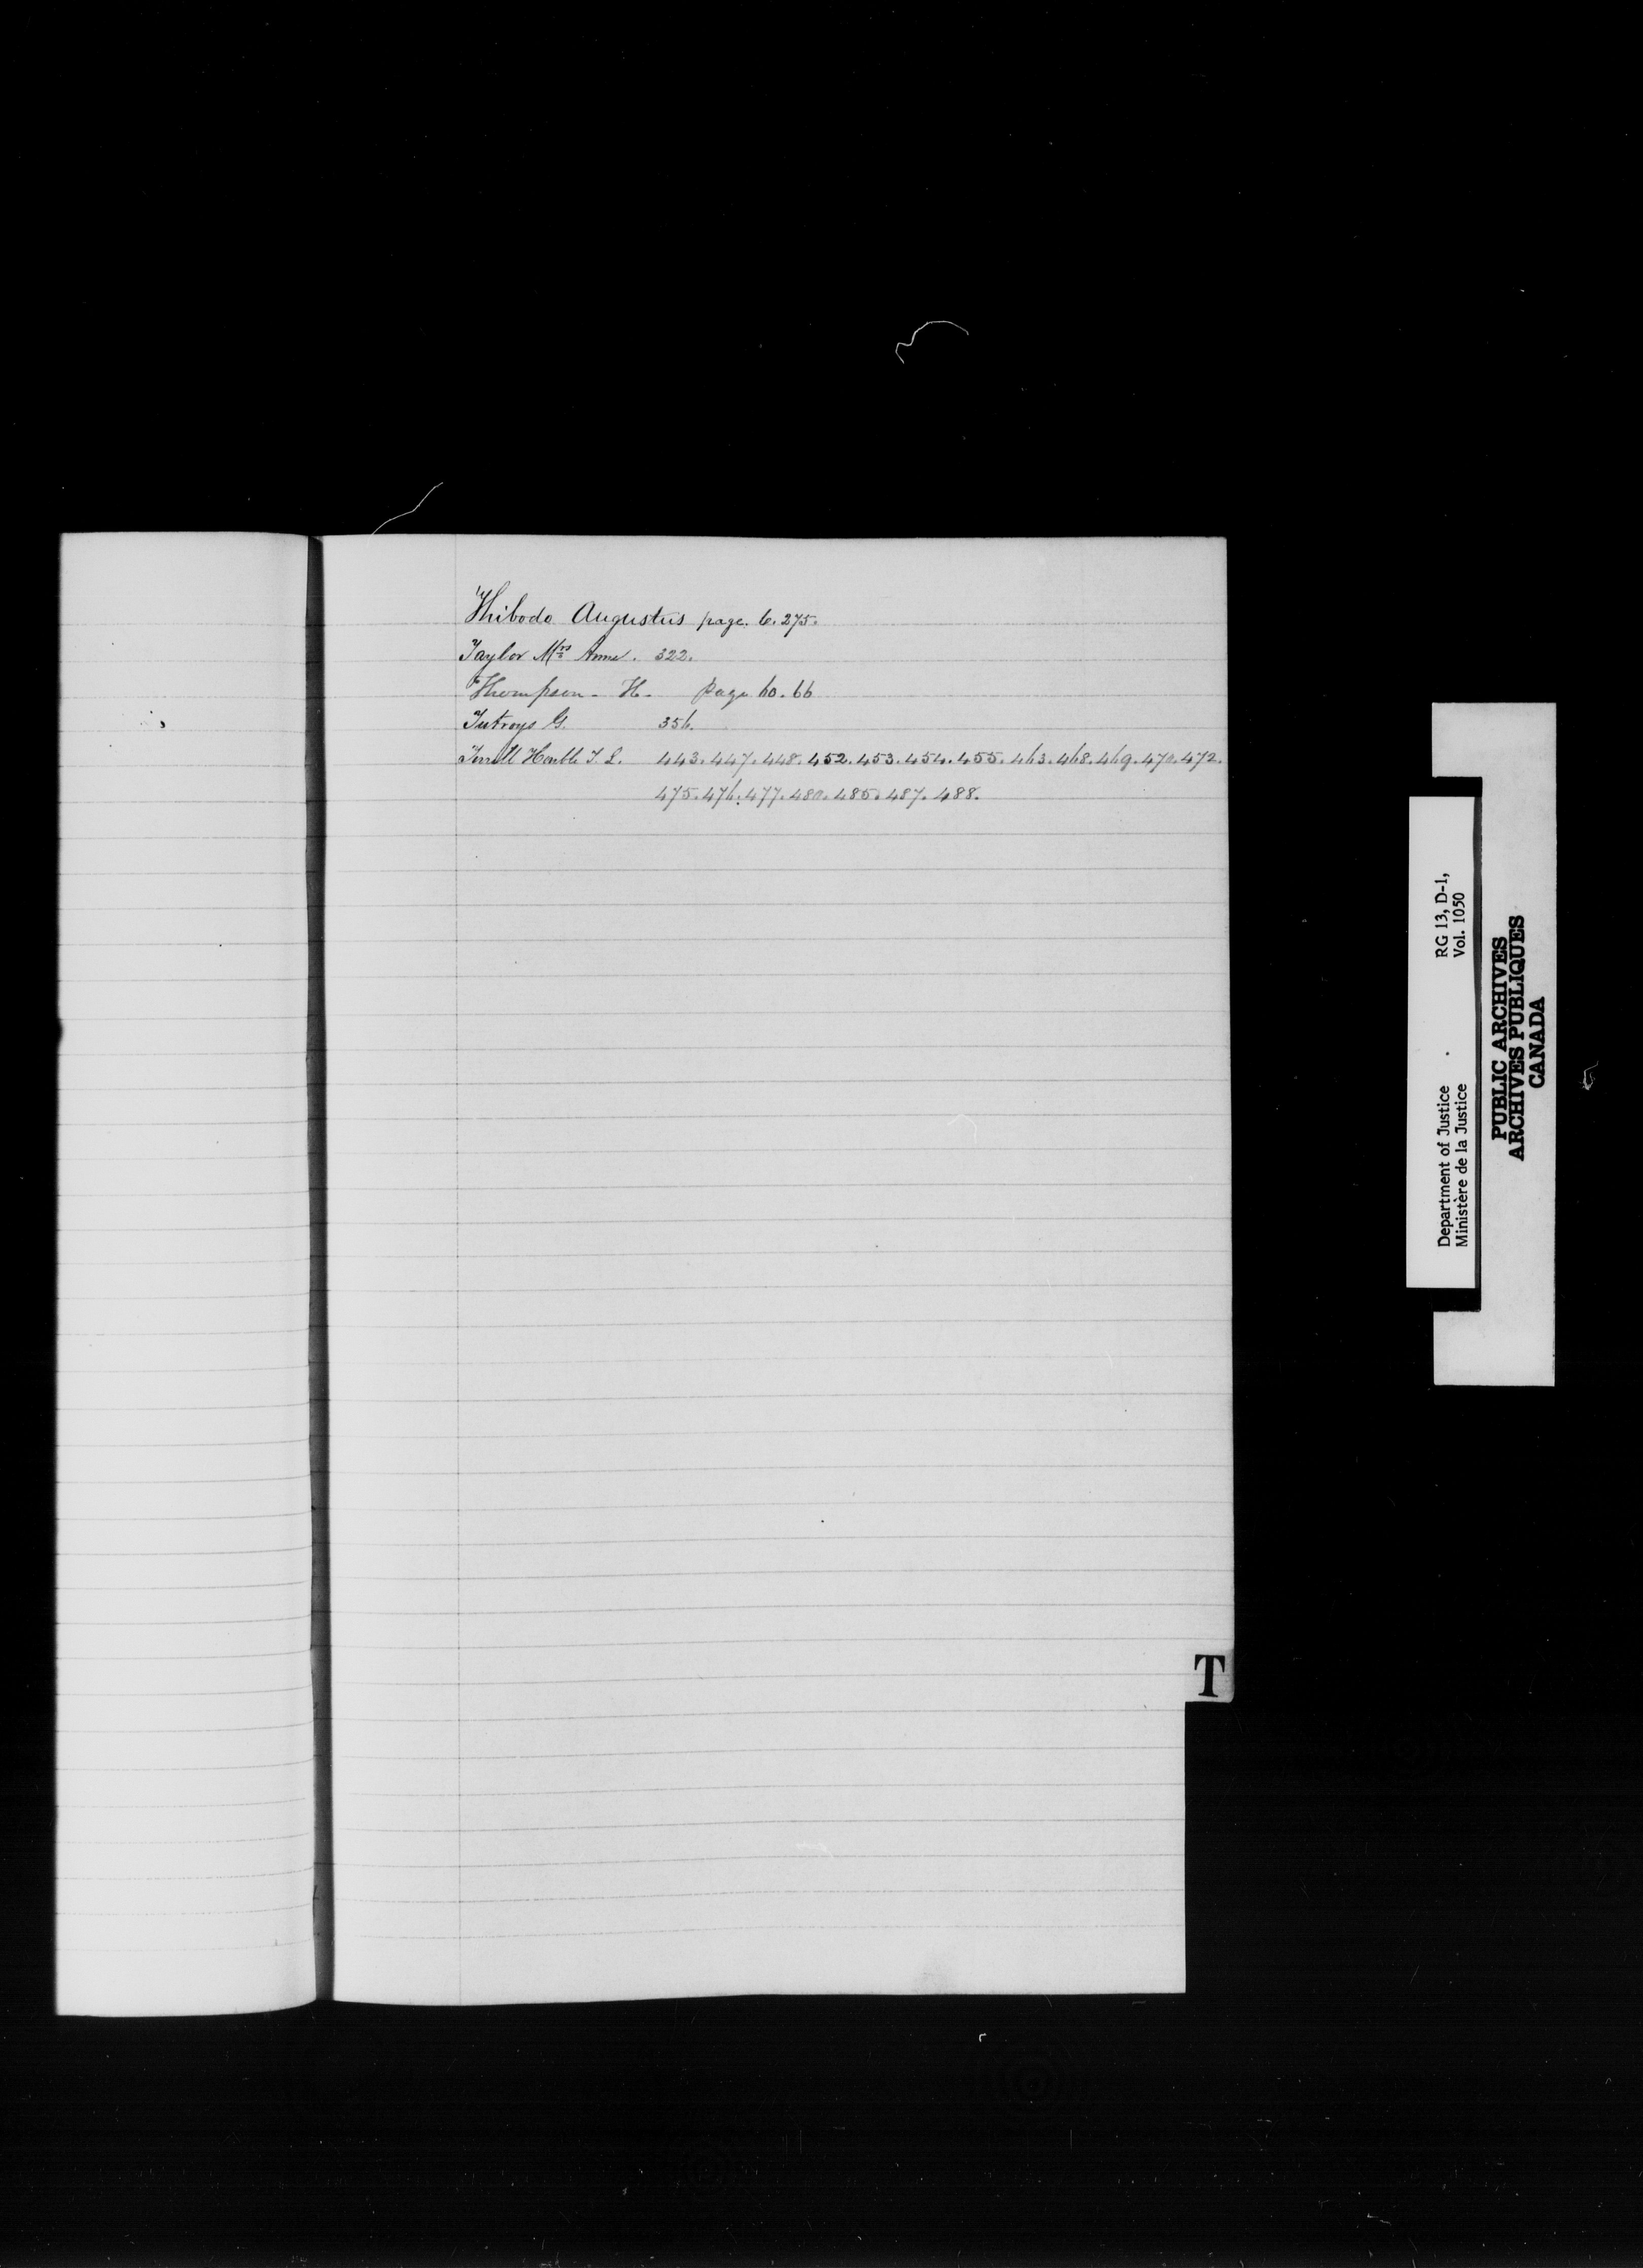 Thibodo Augustus page. 6. 275.
Taylor Mrs Anne. 322.
Thompson - H - Page 60. 66
Tutroys G. 356.
Terrill Honble T. L. 443. 447. 448. 452. 453. 454. 455. 463. 468. 469. 470. 472.
475. 476. 477. 480. 485. 487. 488.
T
Department of Justice RG 13, D-1,
Ministère de la Justice Vol. 1050
PUBLIC ARCHIVES
ARCHIVES PUBLIQUES
CANADA